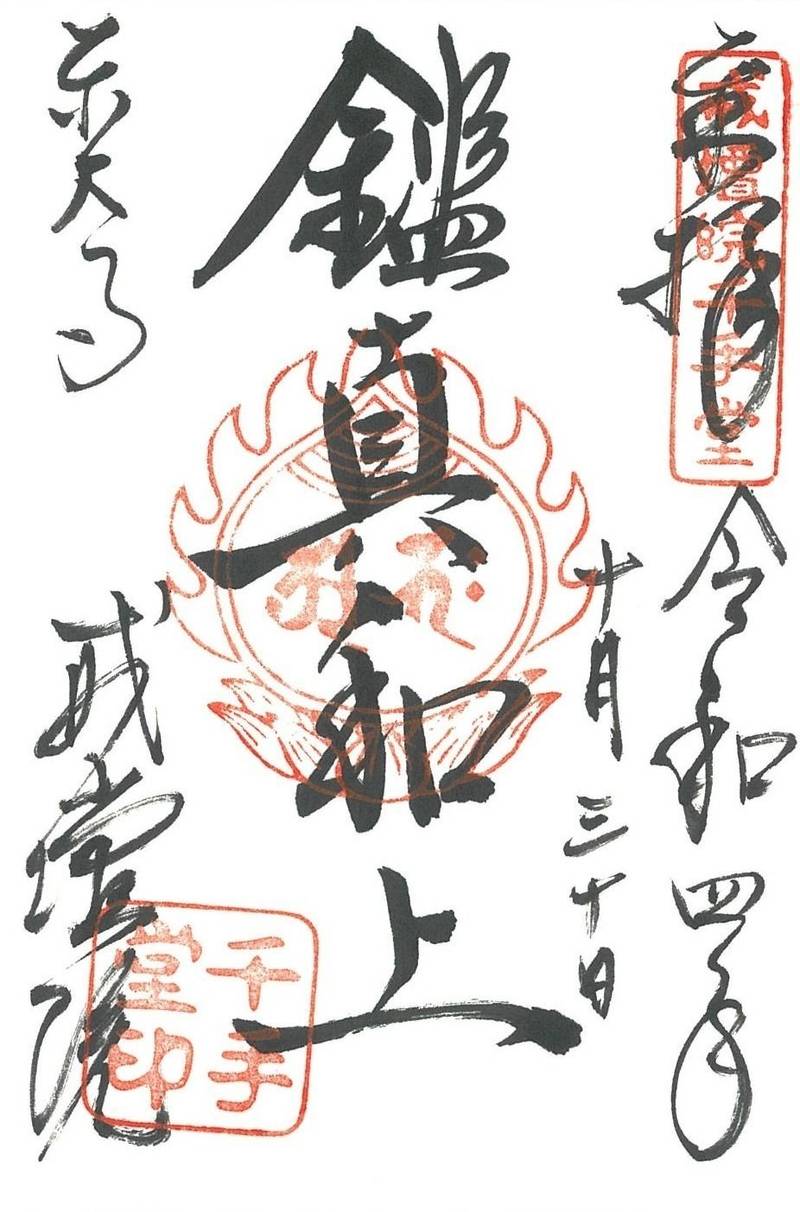 奉拝
戒壇院千手堂
令和四年
十月三十日
鑑真和上
東大寺
戒壇院
千手
堂印